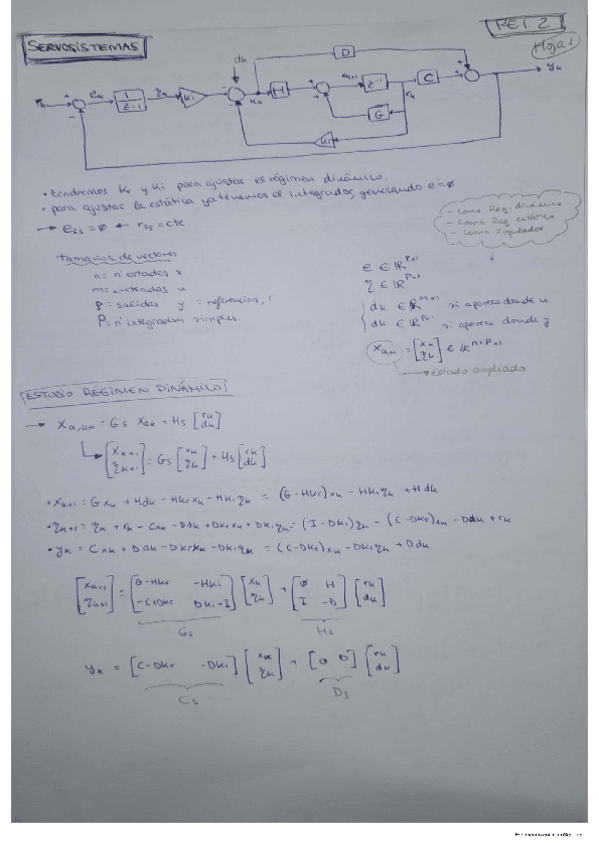 PET 2
SERVOSISTEMAS
Hoja 1
dk D
rk + - ek 1/(z-1) ηk Ki uk H + + xk+1 z⁻¹ xk C + + yk
G
Kr
• tendremos Kr y Ki para ajustar el régimen dinámico.
• para ajustar la estática ya tenemos el integrador, generando e=ø
→ ess = ø ← rss = cte
- como Reg. dinámico
- como Reg. estático
- como Regulador
tamaños de vectores
n = nº estados x
m = entradas u
p = salidas y = referencias, r
P = nº integradores simples.
e ∈ ℝ^Px1
η ∈ ℝ^Px1
dk ∈ ℝ^mx1 si aparece donde u
dk ∈ ℝ si aparece donde y
xa,k = [xk ηk] ∈ ℝ^n+Px1
→ Estado ampliado
ESTUDIO RÉGIMEN DINÁMICO
→ Xa,k+1 = Gs Xak + Hs [rk dk]
[xk+1 ηk+1] = Gs [xk ηk] + Hs [rk dk]
• xk+1 = Gxk + Hdk - HKrxk - HKiηk = (G-HKr)xk - HKiηk + Hdk
• ηk+1 = ηk + rk - Cxk - Ddk + DKrxk + DKiηk = (I-DKi)ηk - (C-DKr)xk - Ddk + rk
• yk = Cxk + Ddk - DKrxk - DKiηk = (C-DKr)xk - DKiηk + Ddk
[xk+1 ηk+1] = [G-HKr -HKi -C+DKr DKi+I] [xk ηk] + [ø H I -D] [rk dk]
Gs Hs
yk = [C-DKr -DKi] [xk ηk] + [0 D] [rk dk]
Cs Ds